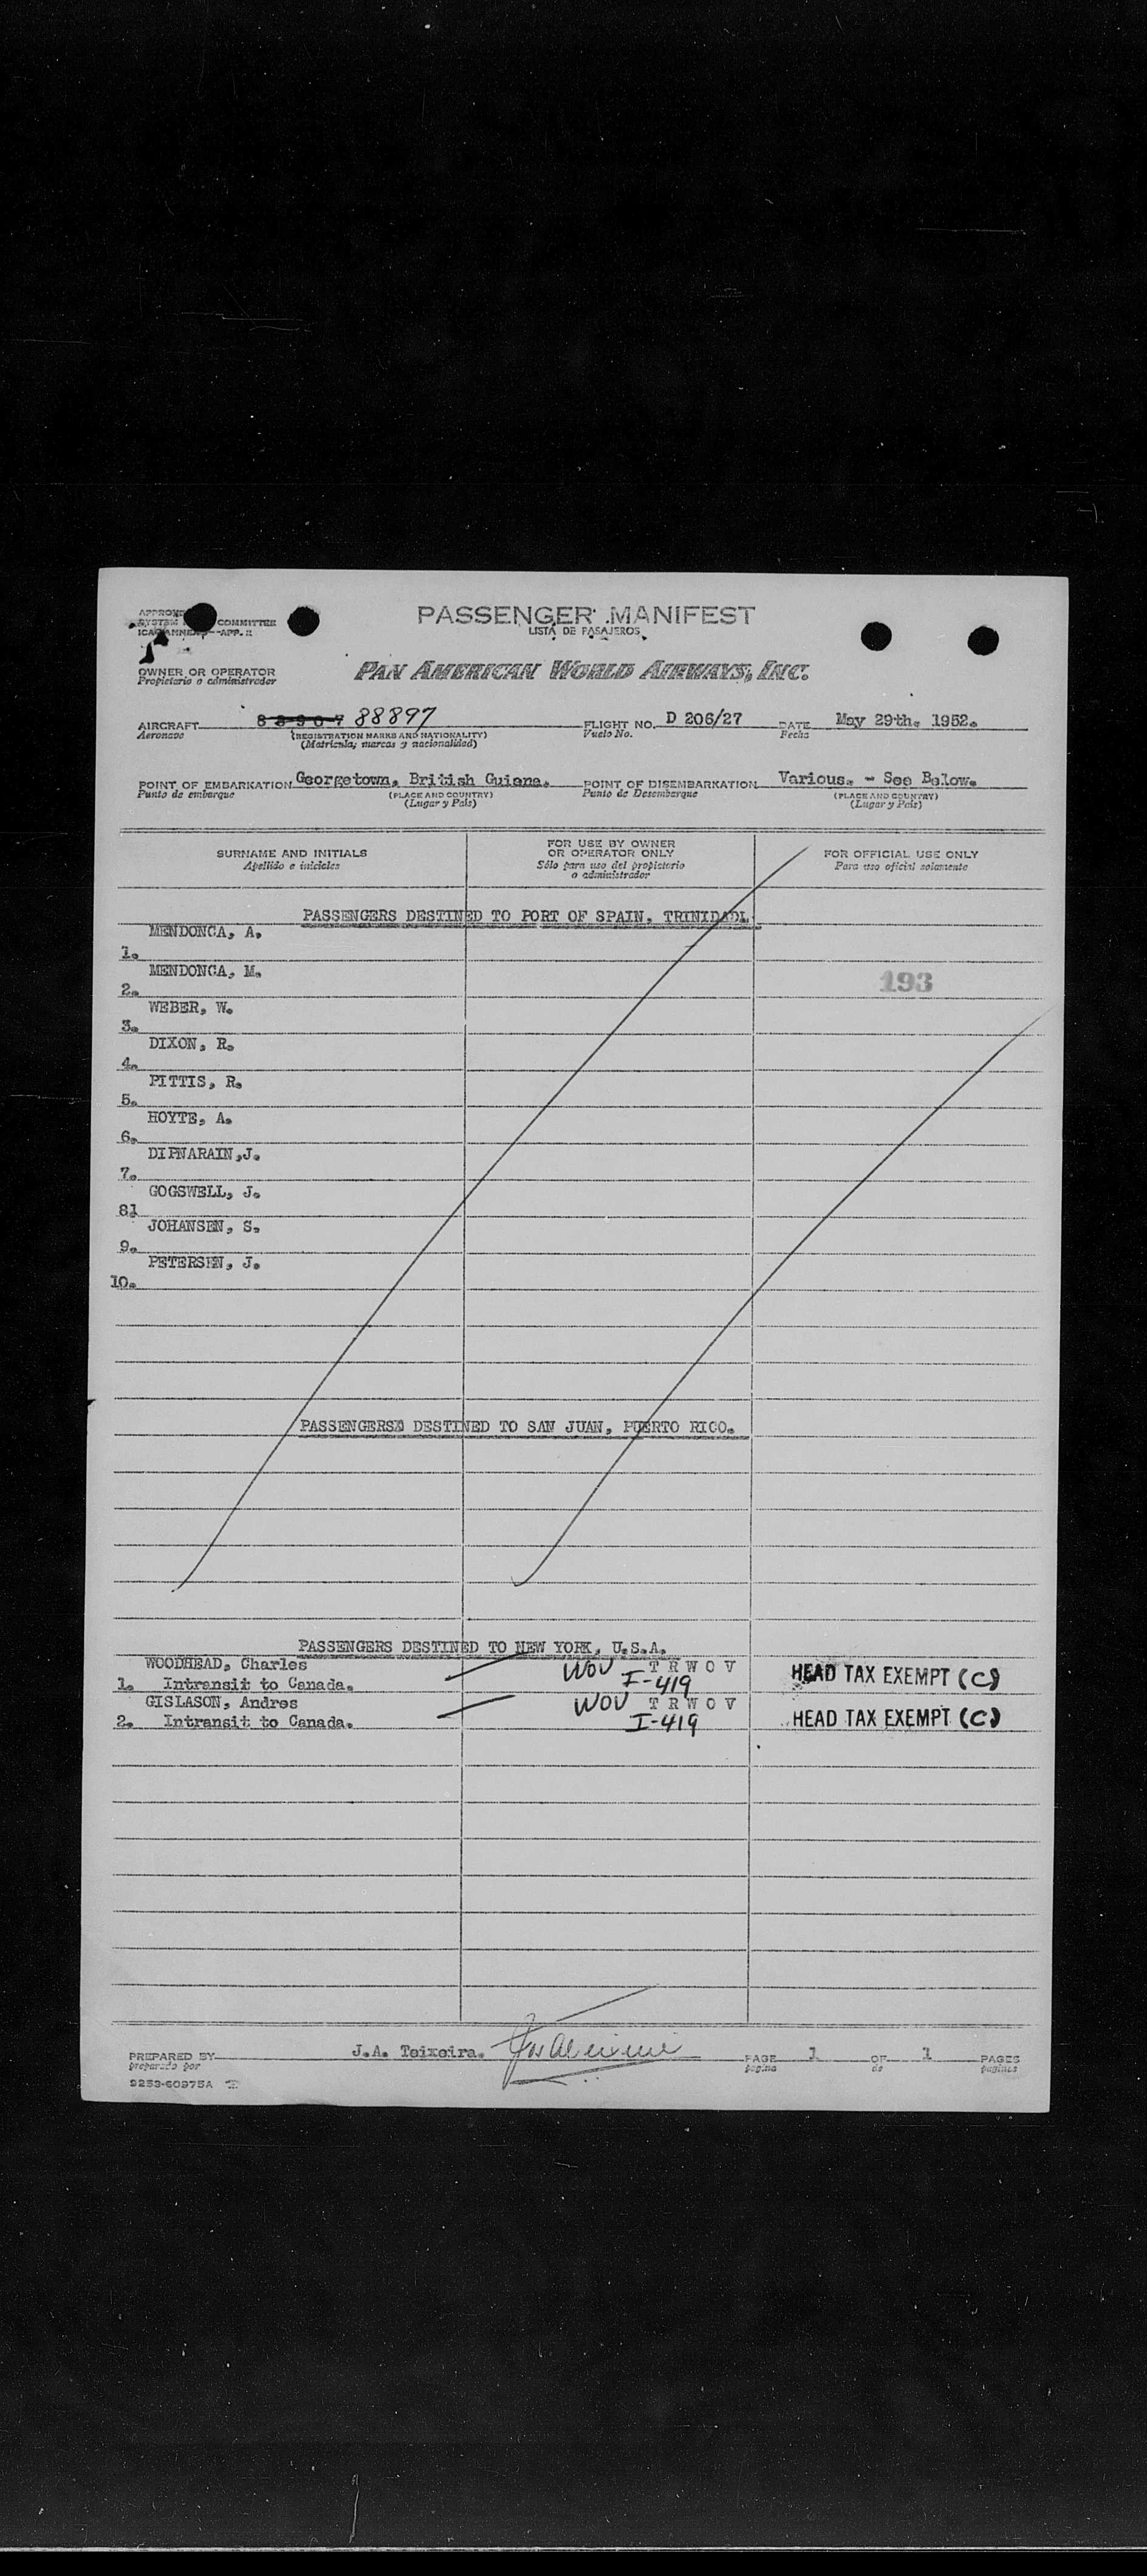 APPROVE
SYSTEM COMMITTEE
ICAO ANNEX 9 - APP. 2
PASSENGER MANIFEST
LISTA DE PASAJEROS
OWNER OR OPERATOR
Propietario o administrador
PAN AMERICAN WORLD AIRWAYS, INC.
AIRCRAFT 88907 88897 FLIGHT NO. D 206/27 DATE May 29th. 1952.
Aeronave (REGISTRATION MARKS AND NATIONALITY) Vuelo No. Fecha
(Matrícula, marcas y nacionalidad)
POINT OF EMBARKATION Georgetown, British Guiana. POINT OF DISEMBARKATION Various. - See Below.
Punto de embarque (PLACE AND COUNTRY) Punto de Desembarque (PLACE AND COUNTRY)
(Lugar y País) (Lugar y País)
SURNAME AND INITIALS FOR USE BY OWNER OR OPERATOR ONLY FOR OFFICIAL USE ONLY
Apellido e iniciales Sólo para uso del propietario o administrador Para uso oficial solamente
PASSENGERS DESTINED TO PORT OF SPAIN, TRINIDAD.
MENDONCA, A.
1.
MENDONCA, M. 193
2.
WEBER, W.
3.
DIXON, R.
4.
PITTIS, R.
5.
HOYTE, A.
6.
DIPNARAIN,J.
7.
GOGSWELL, J.
81
JOHANSEN, S.
9.
PETERSEN, J.
10.
PASSENGERS DESTINED TO SAN JUAN, PUERTO RICO.
PASSENGERS DESTINED TO NEW YORK, U.S.A.
WOODHEAD, Charles WOV T R W O V
1. Intransit to Canada. I-419 HEAD TAX EXEMPT (C)
GISLASON, Andres WOV T R W O V
2. Intransit to Canada. I-419 HEAD TAX EXEMPT (C)
PREPARED BY J.A. Teixeira. PAGE 1 OF 1 PAGES
preparado por página de páginas
9253-60975A